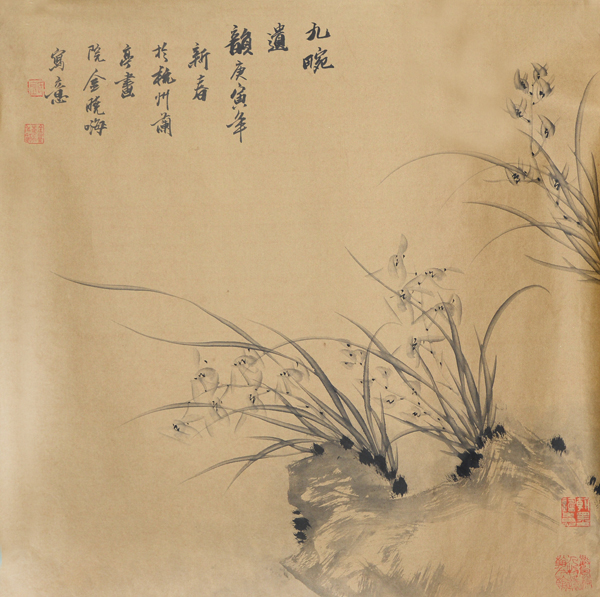 九畹
遺
韻庚寅年
新春
於杭州蘭
亭畫
院金曉海
寫意